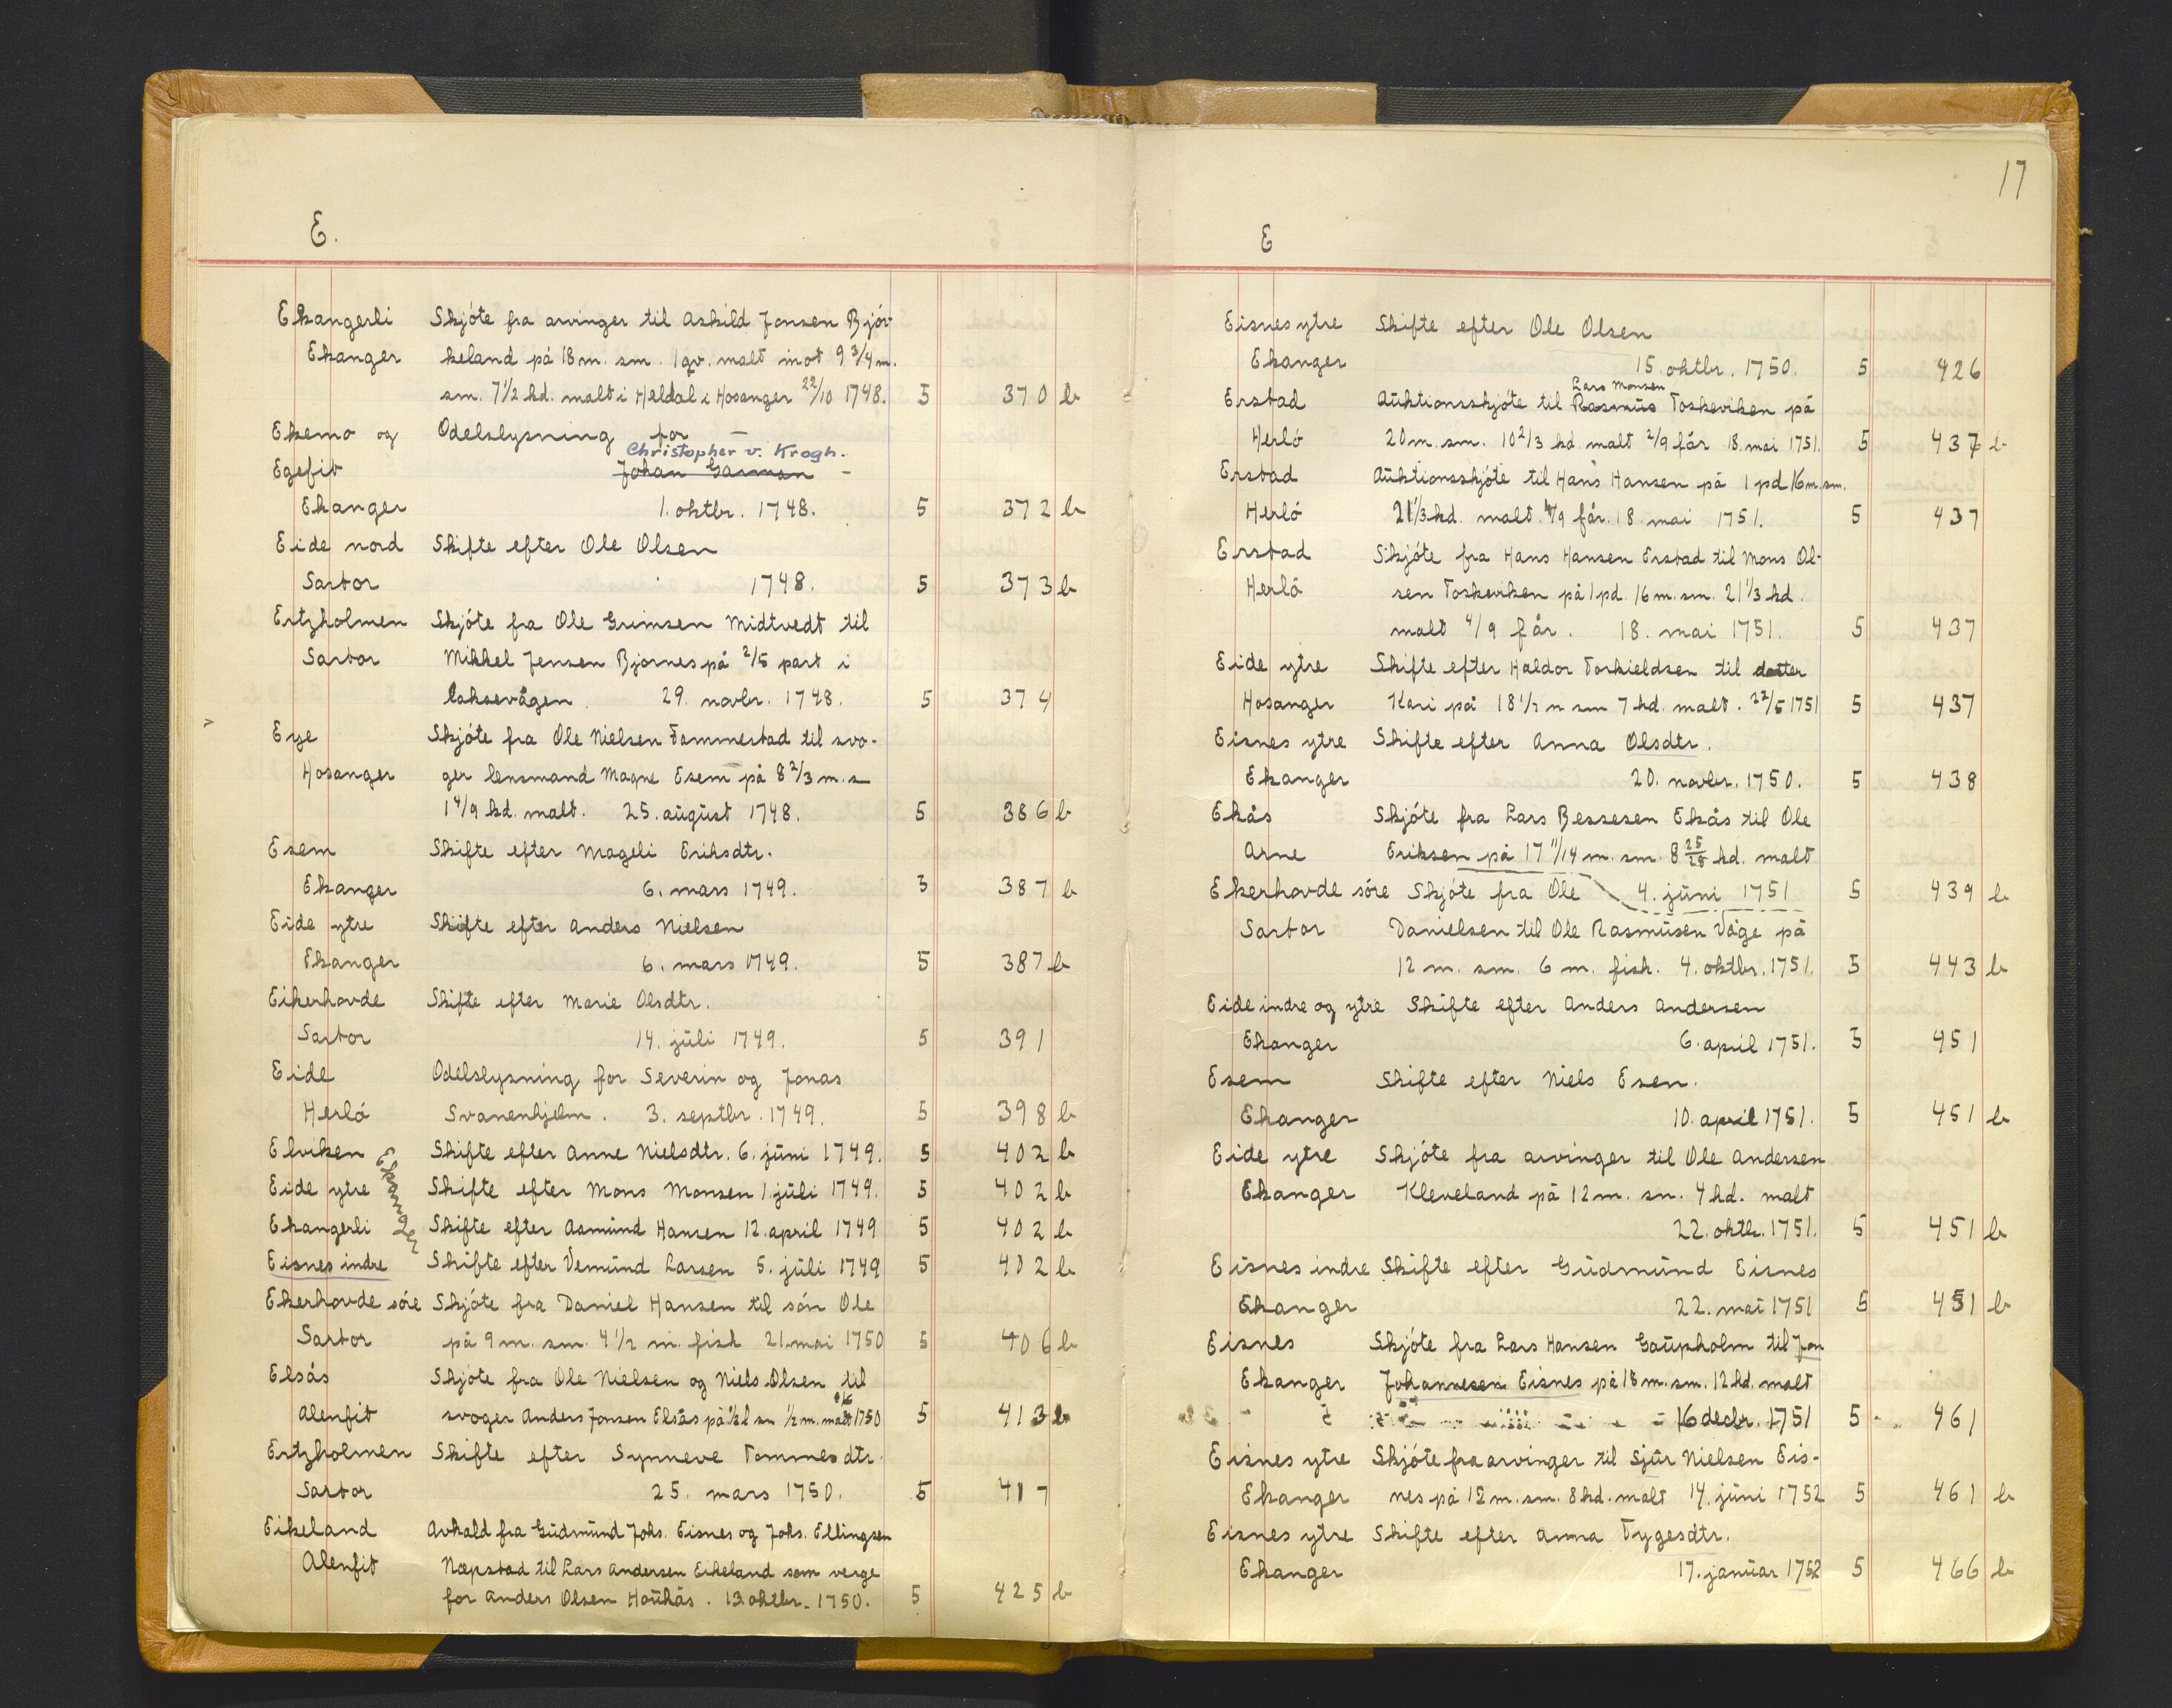 E.
Ekangerli Skjöte fra arvinger til Askild Jonsen Björ-
Ekanger keland på 18 m. sm. 1 qv. malt mot 9 3/4 m.
sm. 7 1/2 kd. malt i Heldal i Hosanger 22/10 1748. 5 370 b
Ekemo og Odelslysning for —
Christopher v. Krogh.
Egefit Johan Garman —
Ekanger 1. oktbr. 1748. 5 372 b
Eide nord Skifte efter Ole Olsen
Sartor 1748. 5 373 b
Ertzholmen Skjöte fra Ole Grimsen Midtvedt til
Sartor Mikkel Jensen Bjornes på 2/5 part i
laksevågen. 29. novbr. 1748. 5 374
Eye Skjöte fra Ole Nielsen Tammestad til svo-
Hosanger ger lensmand Magne Esem på 8 2/3 m. s
1 4/9 kd. malt. 25. august 1748. 5 386 b
Esem Skifte efter Mageli Eriksdtr.
Ekanger 6. mars 1749. 5 387 b
Eide ytre Skifte efter Anders Nielsen
Ekanger 6. mars 1749. 5 387 b
Eikerhovde Skifte efter Marie Olsdtr.
Sartor 14. juli 1749. 5 391
Eide Odelslysning for Severin og Jonas
Herlö Svanenhjelm. 3. septbr. 1749. 5 398 b
Elviken Skifte efter Anne Nielsdtr. 6. juni 1749. 5 402 b
Ekanger
Eide ytre Skifte efter Mons Monsen 1. juli 1749. 5 402 b
Ekangerli Skifte efter Asmund Hansen 12. april 1749 5 402 b
Eisnes indre Skifte efter Vemund Larsen 5. juli 1749 5 402 b
Ekerhovde söre Skjöte fra Daniel Hansen til sön Ole
Sartor på 9 m. sm. 4 1/2 m. fisk 21. mai 1750 5 406 b
Elsås Skjöte fra Ole Nielsen og Niels Olsen til
Alenfit svoger Anders Jonsen Elsås på 1/2 l sm 1/2 m. malt 1750 5 413 b
Ertzholmen Skifte efter Synneve Tommesdtr.
Sartor 25. mars 1750. 5 417
Eikeland Avkald fra Gudmund Johs. Eisnes og Johs. Ellingsen
Alenfit Næpstad til Lars Andersen Eikeland som verge
for Anders Olsen Haukås. 13. oktbr. 1750. 5 425 b
17
E
Eisnes ytre Skifte efter Ole Olsen
Ekanger 15. oktbr. 1750. 5 426
Lars Monsen
Erstad Auktionsskjöte til Rasmus Toskeviken på
Herlö 20 m. sm. 10 2/3 kd. malt 2/9 får 18. mai 1751. 5 437 b
Erstad Auktionsskjöte til Hans Hansen på 1 pd 16 m. sm.
Herlö 21 1/3 kd. malt. 4/9 får. 18. mai 1751. 5 437
Erstad Skjöte fra Hans Hansen Erstad til Mons Ol-
Herlö sen Toskeviken på 1 pd. 16 m. sm. 21 1/3 kd.
malt 4/9 får. 18. mai 1751. 5 437
Eide ytre Skifte efter Haldor Torkieldsen til datter
Hosanger Kari på 18 1/2 m sm 7 kd. malt. 22/5 1751 5 437
Eisnes ytre Skifte efter Anna Olsdtr.
Ekanger 20. novbr. 1750. 5 438
Ekås Skjöte fra Lars Bessesen Ekås til Ole
Arne Eriksen på 17 11/14 m. sm. 8 25/28 kd. malt
Ekerhovde söre Skjöte fra Ole 4. juni 1751 5 439 b
Sartor Danielsen til Ole Rasmusen Våge på
12 m. sm. 6 m. fisk. 4. oktbr. 1751. 5 443 b
Eide indre og ytre Skifte efter Anders Andersen
Ekanger 6. april 1751. 5 451
Esem Skifte efter Niels Esen.
Ekanger 10. april 1751. 5 451 b
Eide ytre Skjöte fra arvinger til Ole Andersen
Ekanger Kleveland på 12 m. sm. 4 kd. malt
22. oktb. 1751. 5 451 b
Eisnes indre Skifte efter Gudmund Eisnes
Ekanger 22. mai 1751 5 451 b
Eisnes Skjöte fra Lars Hansen Gaupholm til Jon
Ekanger Johannesen Eisnes på 18 m. sm. 12 kd. malt
16 decbr. 1751 5 461
Eisnes ytre Skjöte fra arvinger til Sjur Nielsen Eis-
Ekanger nes på 12 m. sm. 8 kd. malt 14. juni 1752 5 461 b
Eisnes ytre Skifte efter Anna Tygesdtr.
Ekanger 17. januar 1752 5 466 b